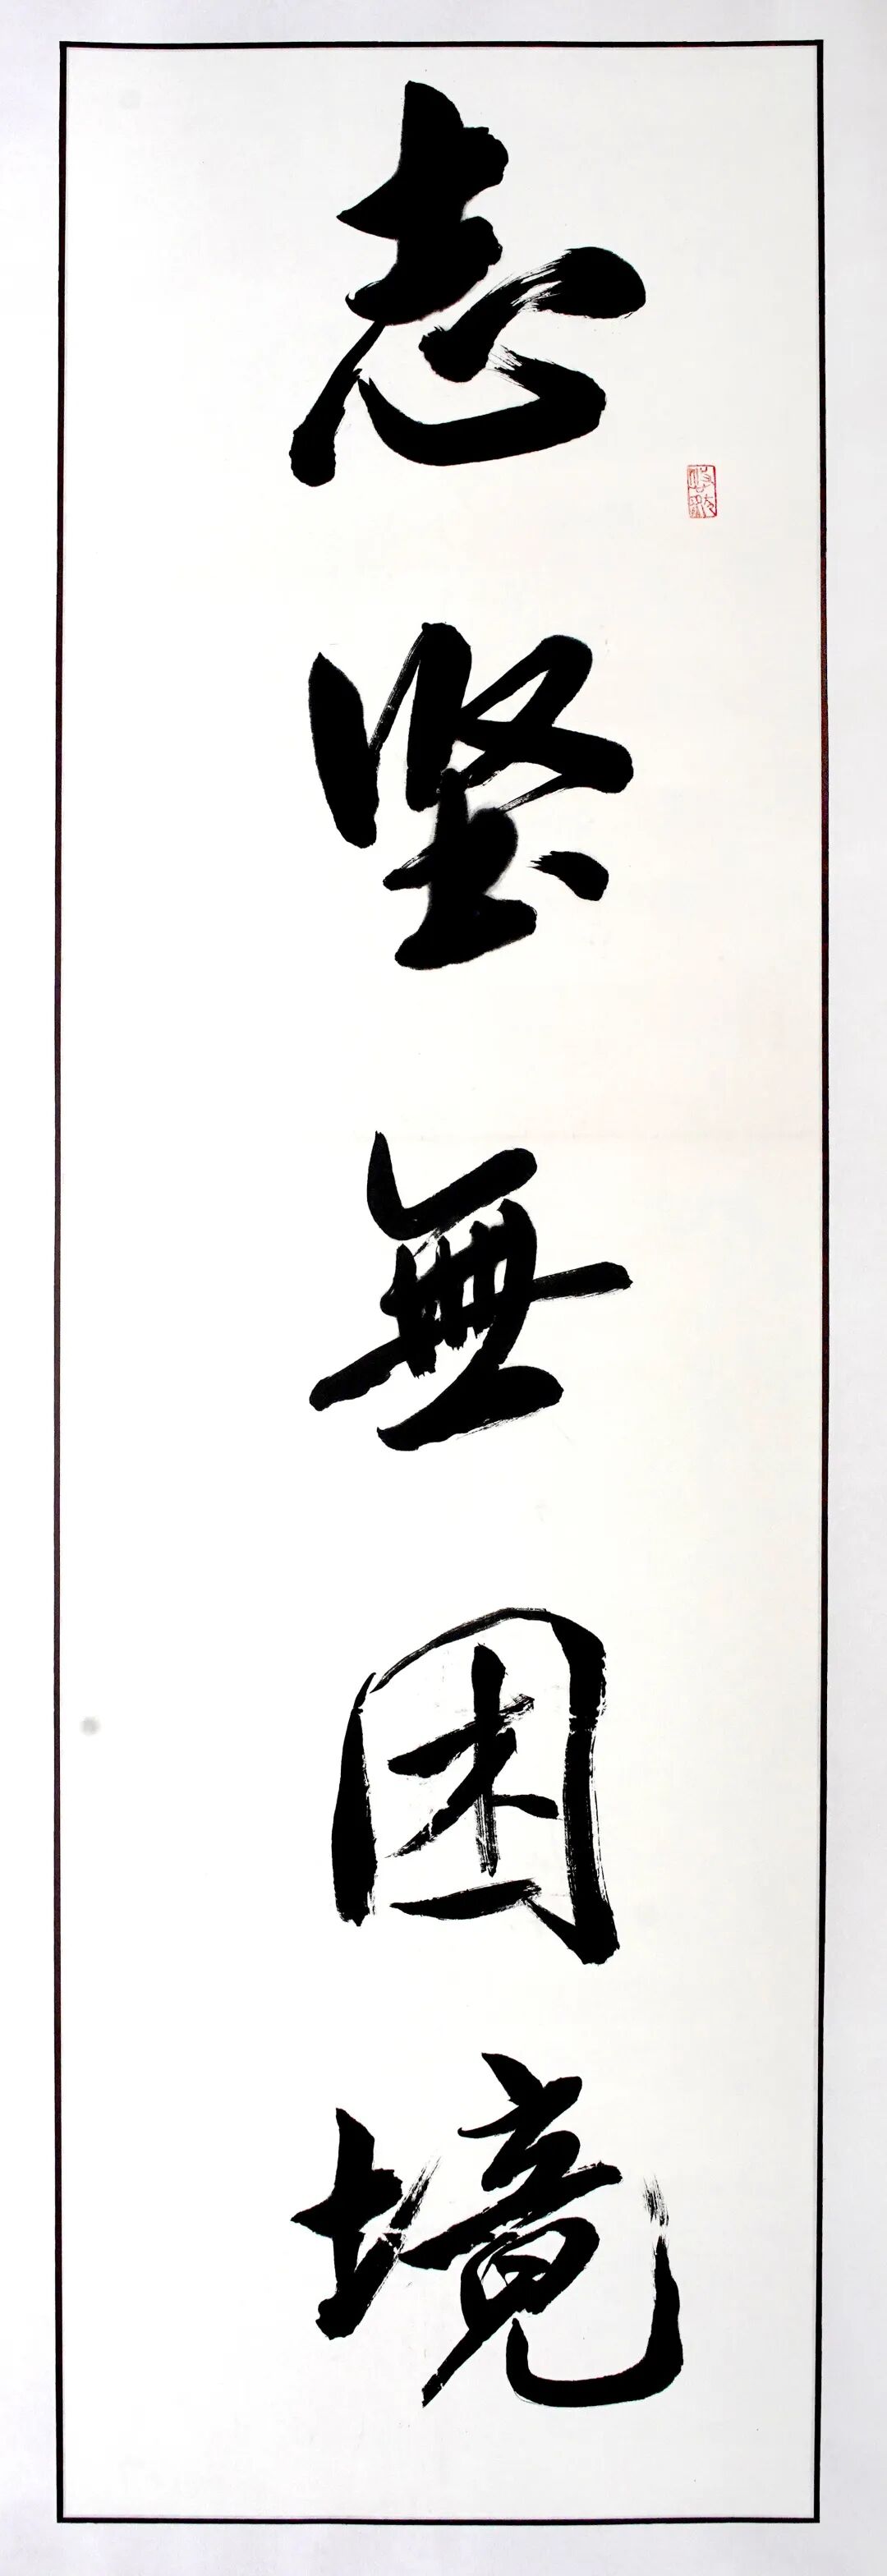 志坚無困境